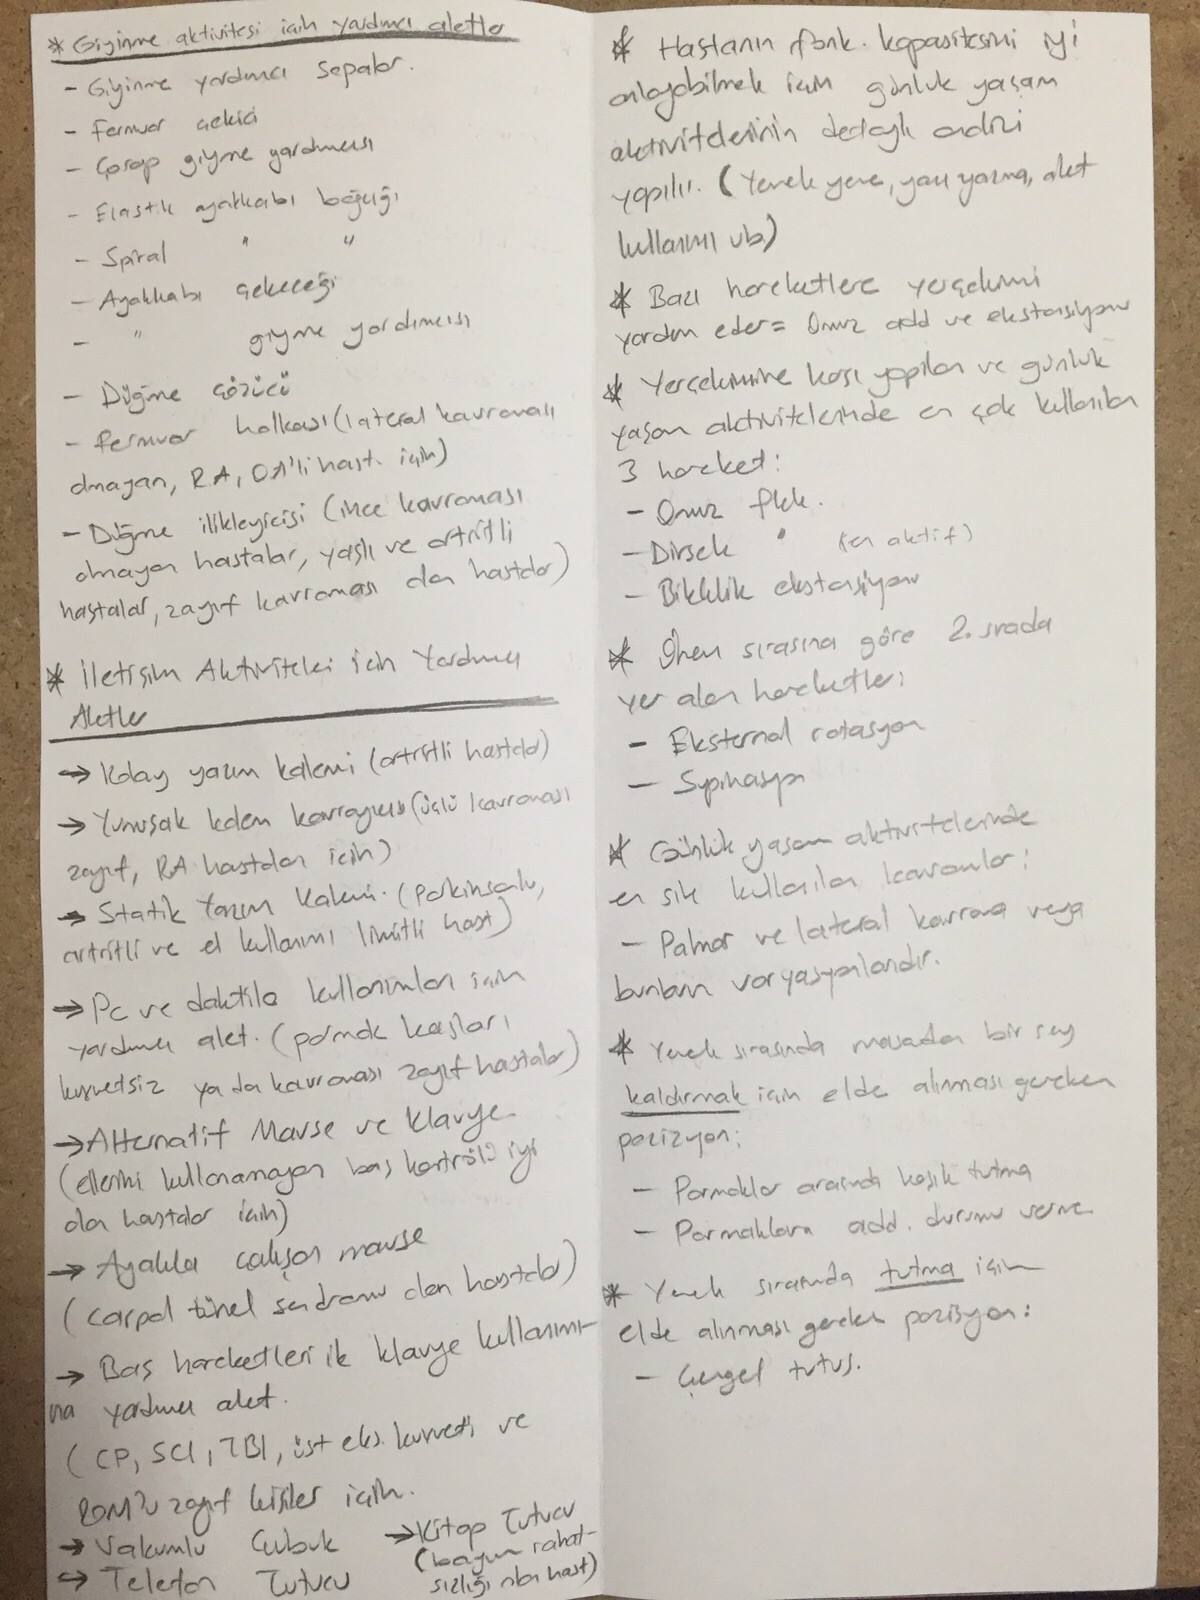 * Giyinme aktivitesi için yardımcı aletler
- Giyinme yardımcı sopalar.
- Fermuar çekici
- Çorap giyme yardımcısı
- Elastik ayakkabı bağcığı
- Spiral " "
- Ayakkabı çekeceği
- " giyme yardımcısı
- Düğme çözücü
- Fermuar halkası (lateral kavraması
olmayan, RA, OA'li hast. için)
- Düğme ilikleyicisi (ince kavraması
olmayan hastalar, yaşlı ve artritli
hastalar, zayıf kavraması olan hastalar)
* İletişim Aktiviteleri için Yardımcı
Aletler
→ Kolay yazım kalemi (artritli hastalar)
→ Yumuşak kalem kavrayıcısı (üçlü kavraması
zayıf, RA hastaları için)
→ Statik Yazım Kalemi. (parkinsonlu,
artritli ve el kullanımı limitli hast)
→ Pc ve daktilo kullanımları için
yardımcı alet. (parmak kasları
kuvvetsiz ya da kavraması zayıf hastalar)
→ Alternatif Mause ve klavye
(ellerini kullanamayan baş kontrolü iyi
olan hastalar için)
→ Ayakla çalışan mause
(carpal tünel sendromu olan hastalar)
→ Baş hareketleri ile klavye kullanımı-
na yardımcı alet.
(CP, SCI, TBI, üst eks. kuvveti ve
ROM'u zayıf kişiler için.
→ Vakumlu Çubuk
→ Telefon Tutucu
→ Kitap Tutucu
(boyun rahat-
sızlığı olan hast)
* Hastanın fonk. kapasitesini iyi
anlayabilmek için günlük yaşam
aktivitelerinin detaylı analizi
yapılır. (Yemek yeme, yazı yazma, alet
kullanımı vb)
* Bazı hareketlere yerçekimi
yardım eder = Omuz add ve ekstansiyonu
* Yerçekimine karşı yapılan ve günlük
yaşam aktivitelerinde en çok kullanılan
3 hareket:
- Omuz flek.
- Dirsek " (en aktif)
- Bileklik ekstansiyonu
* Önem sırasına göre 2. sırada
yer alan hareketler;
- Eksternal rotasyon
- Supinasyon
* Günlük yaşam aktivitelerinde
en sık kullanılan kavramalar;
- Palmar ve lateral kavrama veya
bunların varyasyonlarıdır.
* Yemek sırasında masadan bir şey
kaldırmak için elde alınması gereken
pozisyon;
- Parmaklar arasında kaşık tutma
- Parmaklara add. durumu verme
* Yemek sırasında tutma için
elde alınması gereken pozisyon:
- Çengel tutuş.